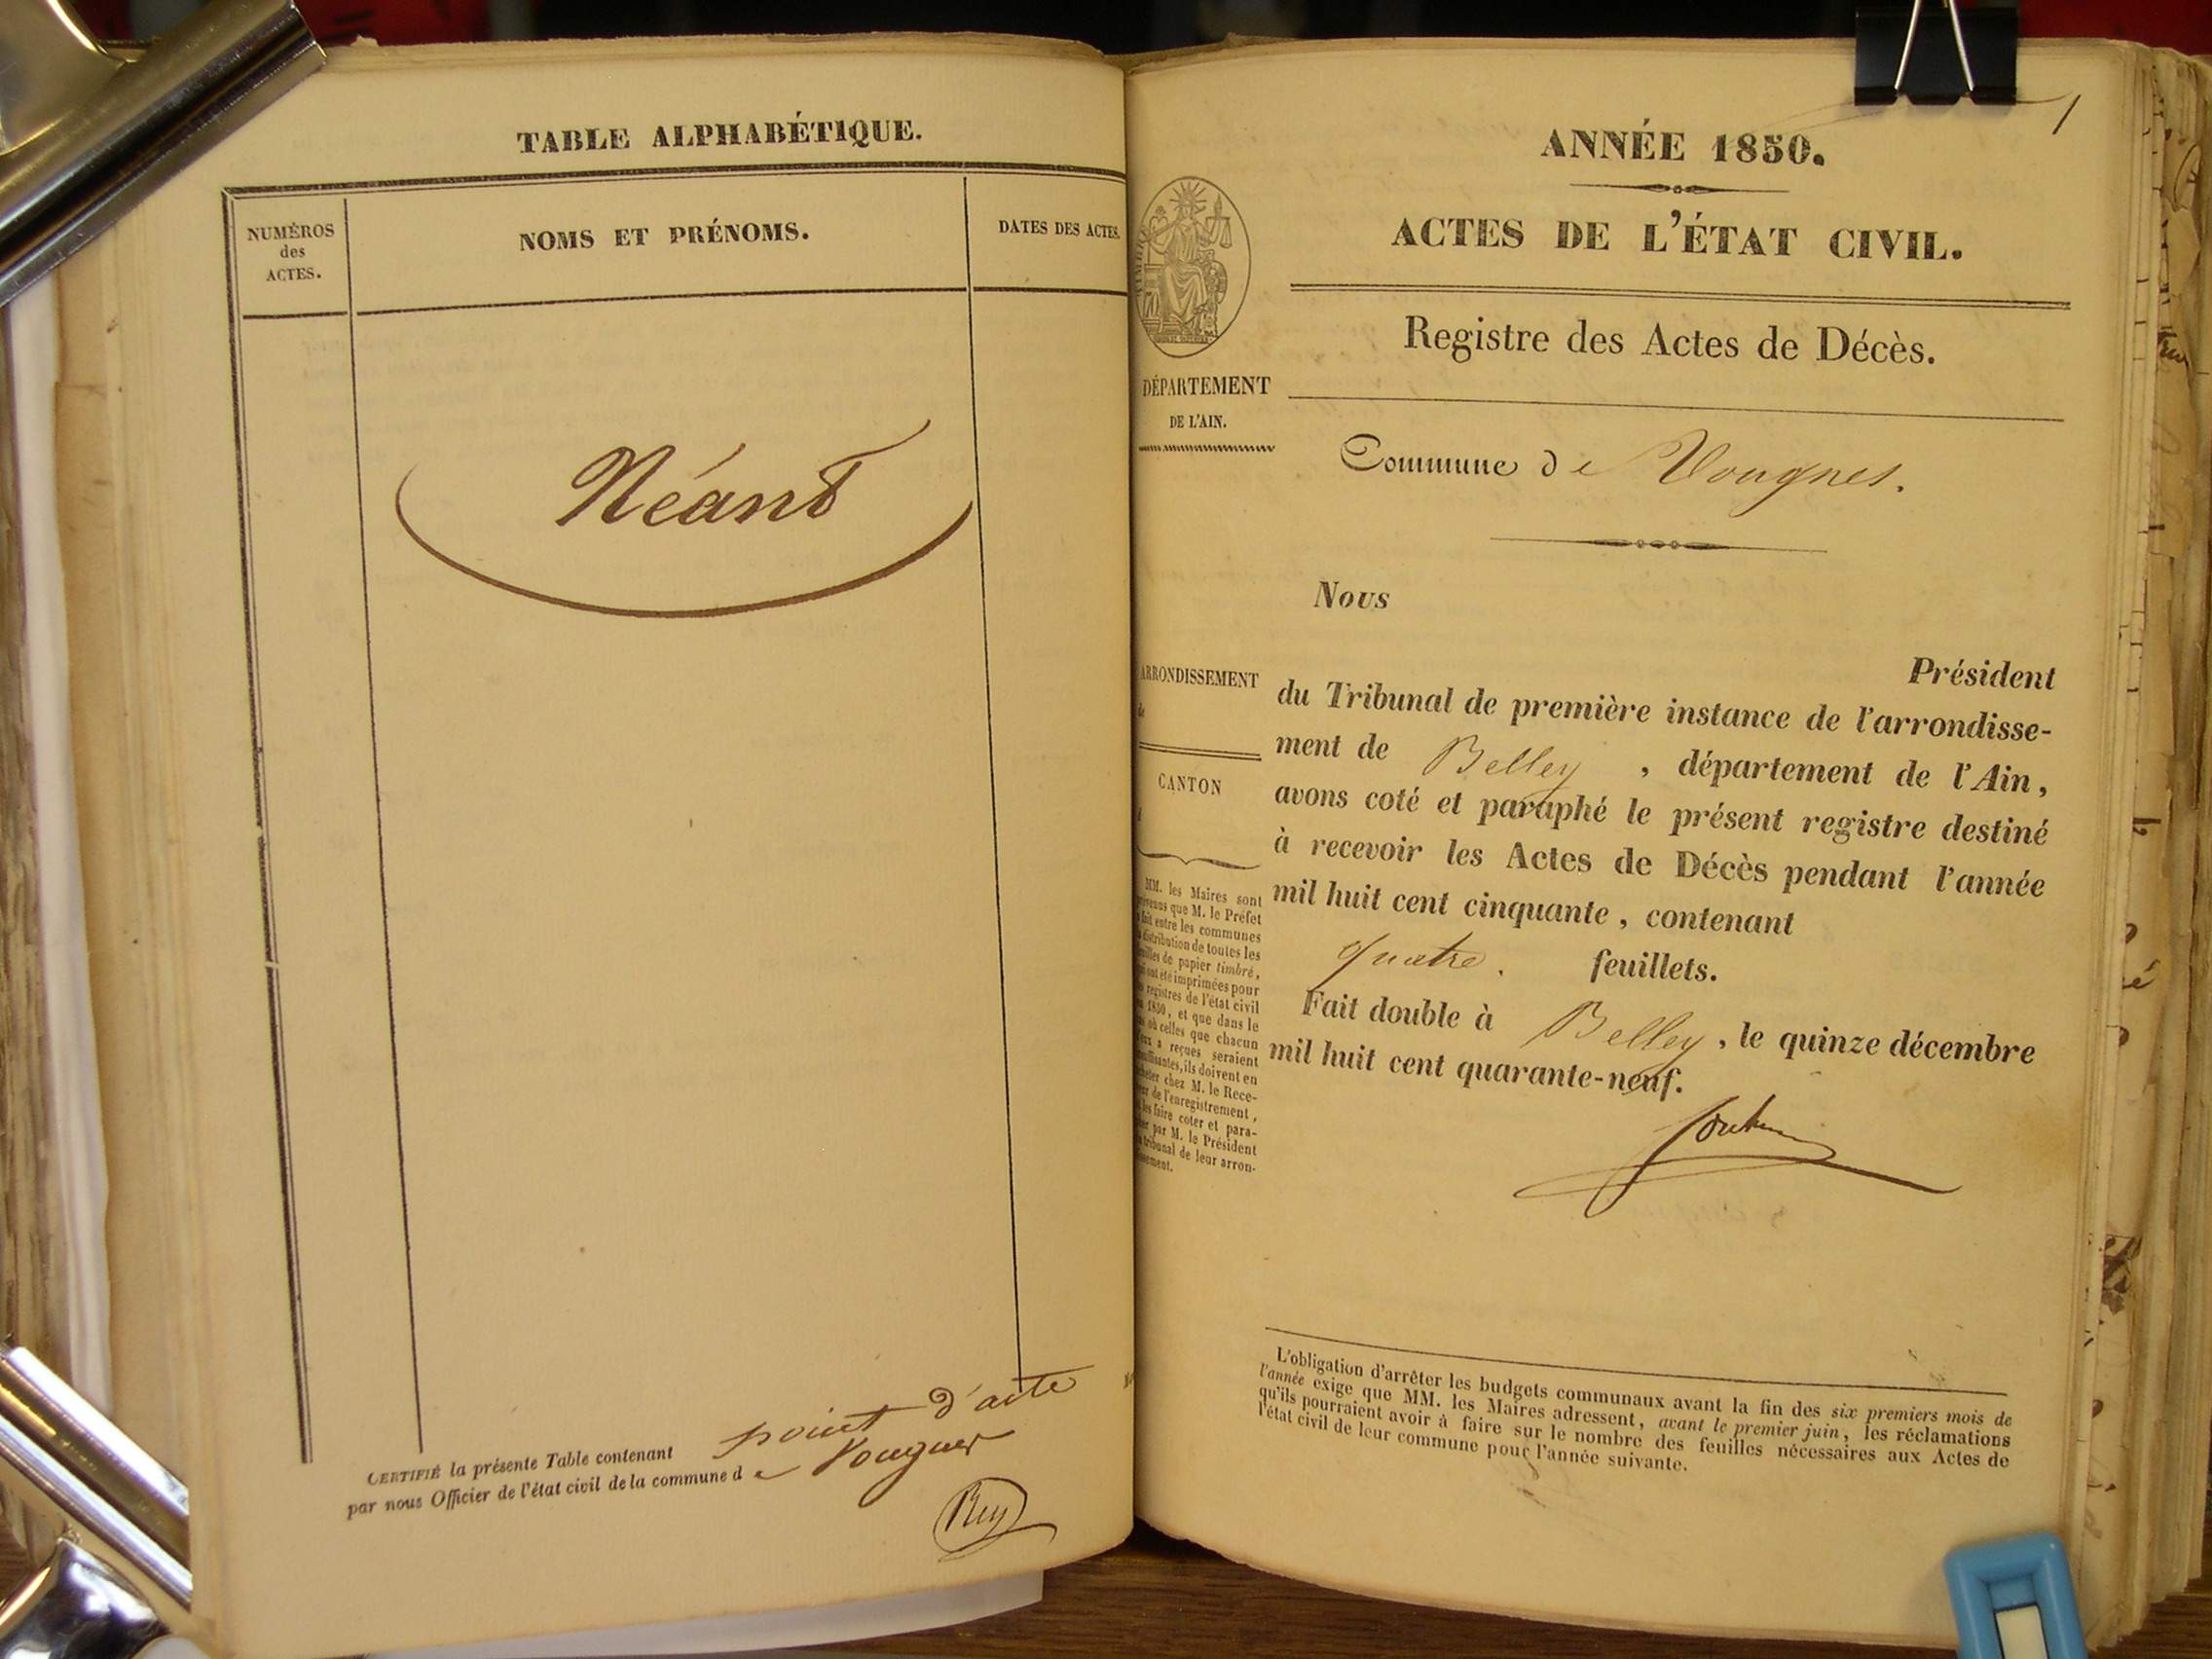 TABLE ALPHABÉTIQUE.
NUMÉROS
des
ACTES.
NOMS ET PRÉNOMS.
DATES DES ACTES.
Néant
CERTIFIÉ la présente Table contenant point d'acte
par nous Officier de l'état civil de la commune de Vougnes
Rey
1
ANNÉE 1850.
ACTES DE L'ÉTAT CIVIL.
Registre des Actes de Décès.
DÉPARTEMENT
DE L'AIN.
Commune de Vougnes.
Nous
Président
du Tribunal de première instance de l'arrondisse-
ment de Belley , département de l'Ain,
avons coté et paraphé le présent registre destiné
à recevoir les Actes de Décès pendant l'année
mil huit cent cinquante, contenant
quatre. feuillets.
Fait double à Belley, le quinze décembre
mil huit cent quarante-neuf.
ARRONDISSEMENT
de
CANTON
d
MM. les Maires sont
que M. le Préfet
fait entre les communes
distribution de toutes les
de papier timbré,
ont été imprimées pour
registres de l'état civil
1850, et que dans le
où celles que chacun
a reçues seraient
ils doivent en
chez M. le Rece-
de l'enregistrement,
les faire coter et para-
par M. le Président
tribunal de leur arron-
L'obligation d'arrêter les budgets communaux avant la fin des six premiers mois de
l'année exige que MM. les Maires adressent, avant le premier juin, les réclamations
qu'ils pourraient avoir à faire sur le nombre des feuilles nécessaires aux Actes de
l'état civil de leur commune pour l'année suivante.